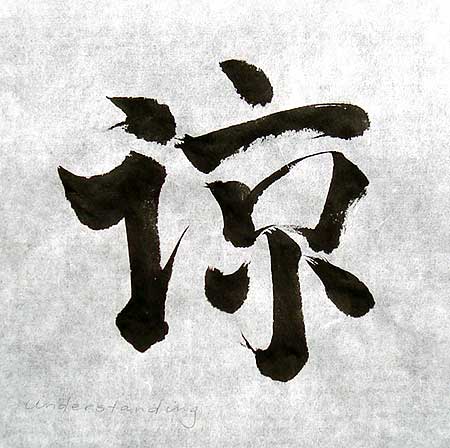 谅
understanding